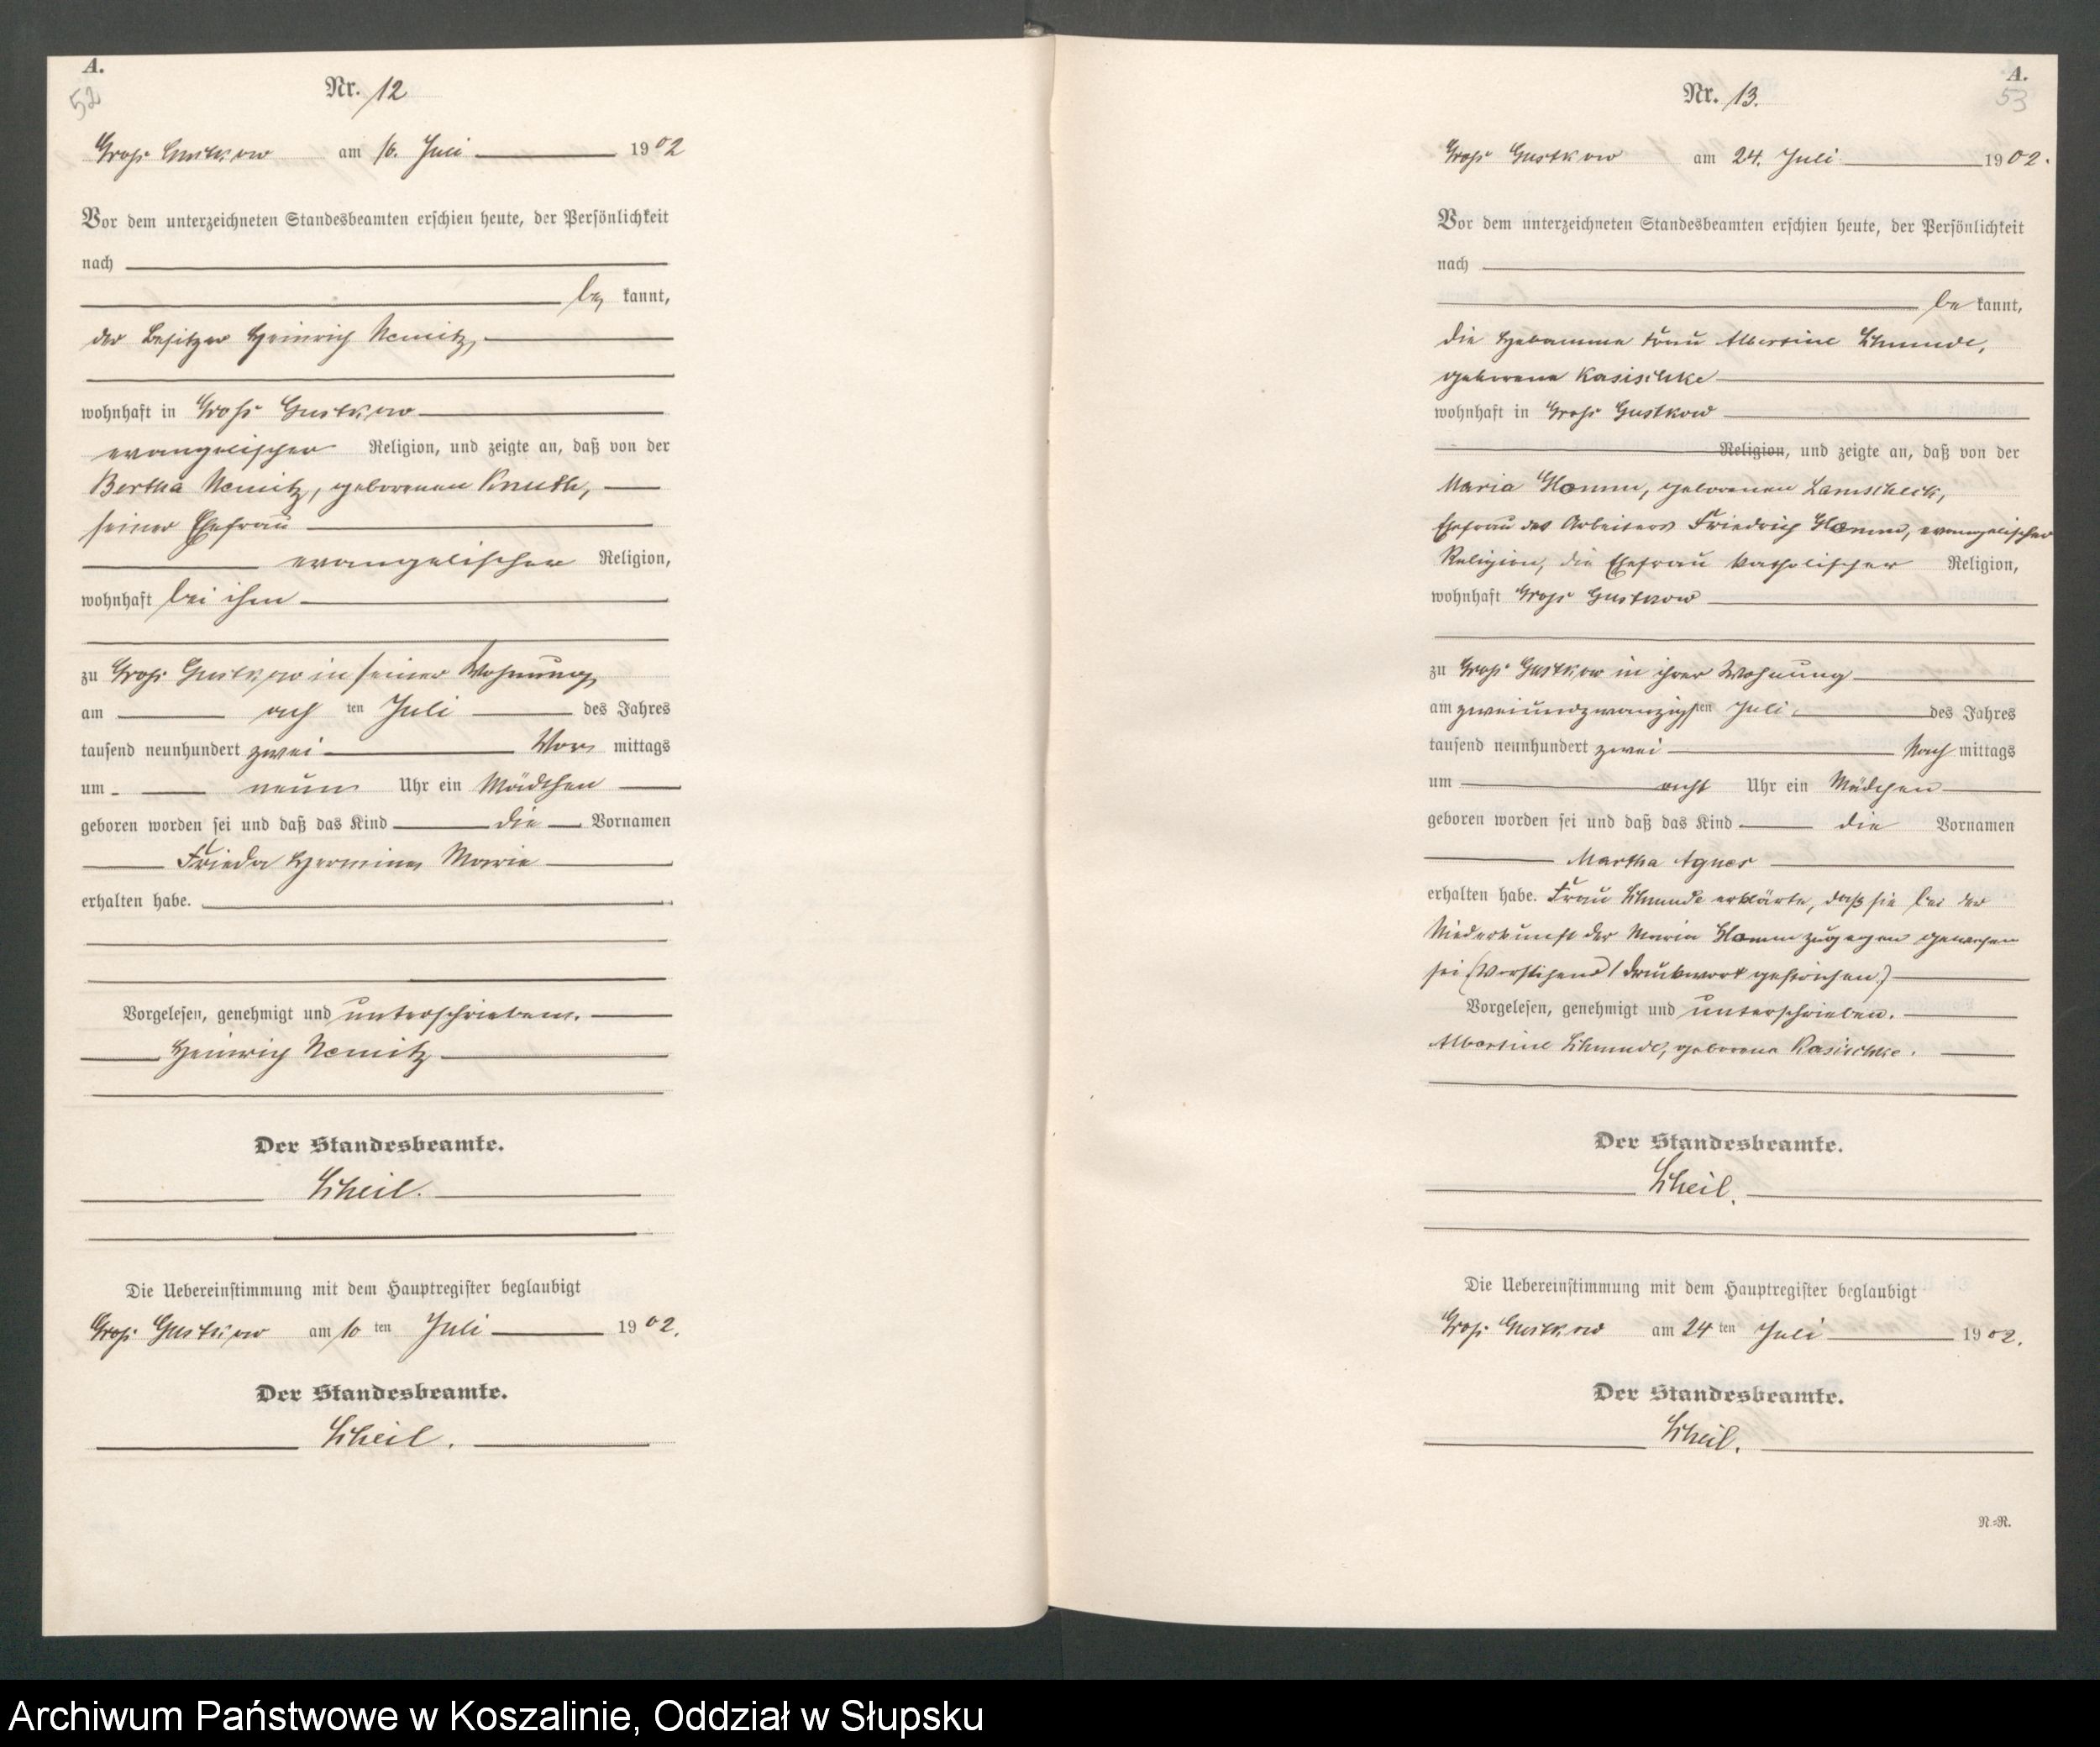 A.
52
Nr. 12
Groß Gustkow am 10. Juli 1902
Vor dem unterzeichneten Standesbeamten erschien heute, der Persönlichkeit
nach
be kannt,
der Besitzer Heinrich Nemitz,
wohnhaft in Groß Gustkow
evangelischer Religion, und zeigte an, daß von der
Bertha Nemitz, geborenen Knuth,
seiner Ehefrau
evangelischer Religion,
wohnhaft bei ihm
zu Groß Gustkow in seiner Wohnung
am ach ten Juli des Jahres
tausend neunhundert zwei Vor mittags
um neun Uhr ein Mädchen
geboren worden sei und daß das Kind die Vornamen
Frieda Hermine Marie
erhalten habe.
Vorgelesen, genehmigt und unterschrieben.
Heinrich Nemitz
Der Standesbeamte.
Scheil.
Die Uebereinstimmung mit dem Hauptregister beglaubigt
Groß Gustkow am 10 ten Juli 1902.
Der Standesbeamte.
Scheil.
A.
53
Nr. 13.
Groß Gustkow am 24. Juli 1902.
Vor dem unterzeichneten Standesbeamten erschien heute, der Persönlichkeit
nach
be kannt,
die Hebamme Frau Albertine
geborene Kasischke
wohnhaft in Groß Gustkow
Religion, und zeigte an, daß von der
Maria geborenen Lamscheck,
Ehefrau des Arbeiters Friedrich evangelischer
Religion, die Ehefrau katholischer Religion,
wohnhaft Groß Gustkow
zu Groß Gustkow in ihrer Wohnung
am zweiundzwanzigsten Juli des Jahres
tausend neunhundert zwei Nach mittags
um acht Uhr ein Mädchen
geboren worden sei und daß das Kind die Vornamen
Martha Agnes
erhalten habe. Frau erklärte, daß sie bei der
Niederkunft der Maria zugegen gewesen
sei (Vorstehend 1 Druckwort gestrichen.)
Vorgelesen, genehmigt und unterschrieben.
Albertine geborene Kasischke.
Der Standesbeamte.
Scheil.
Die Uebereinstimmung mit dem Hauptregister beglaubigt
Groß Gustkow am 24 ten Juli 1902.
Der Standesbeamte.
Scheil.
N.=R.
Archiwum Państwowe w Koszalinie, Oddział w Słupsku